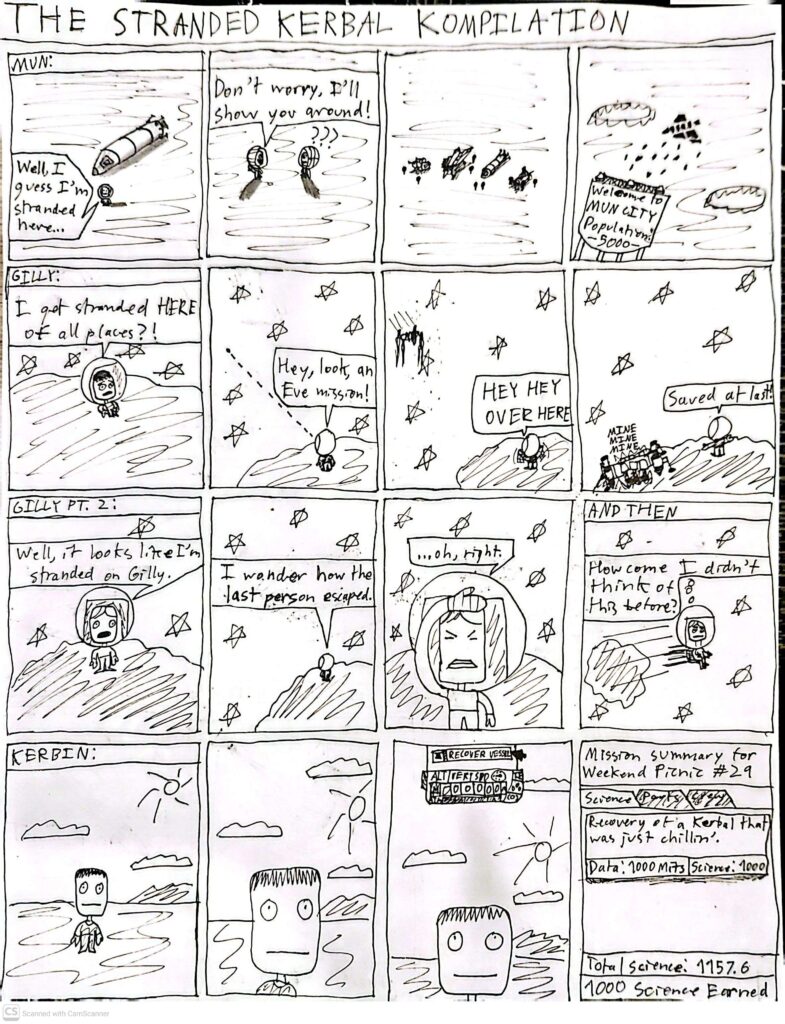 THE STRANDED KERBAL KOMPILATION
MUN:
Well, I
guess I'm
stranded
here...
Don't worry, I'll
show you around!
???
Welcome to
MUN CITY
Population:
-5000-
GILLY:
I got stranded HERE
of all places?!
Hey, look, an
Eve mission!
HEY HEY
OVER HERE
MINE
MINE
MINE
Saved at last!
GILLY PT. 2:
Well, it looks like I'm
stranded on Gilly.
I wander how the
last person escaped.
...oh, right.
AND THEN
How come I didn't
think of
this before?
KERBIN:
RECOVER VESSEL
ALT VERT SPD
M 00000
Mission summary for
Weekend Picnic #29
Science Parts Crew
Recovery of a Kerbal that
was just chillin'.
Data: 1000 Mits Science: 1000
Total Science: 1157.6
1000 Science Earned
CS Scanned with CamScanner